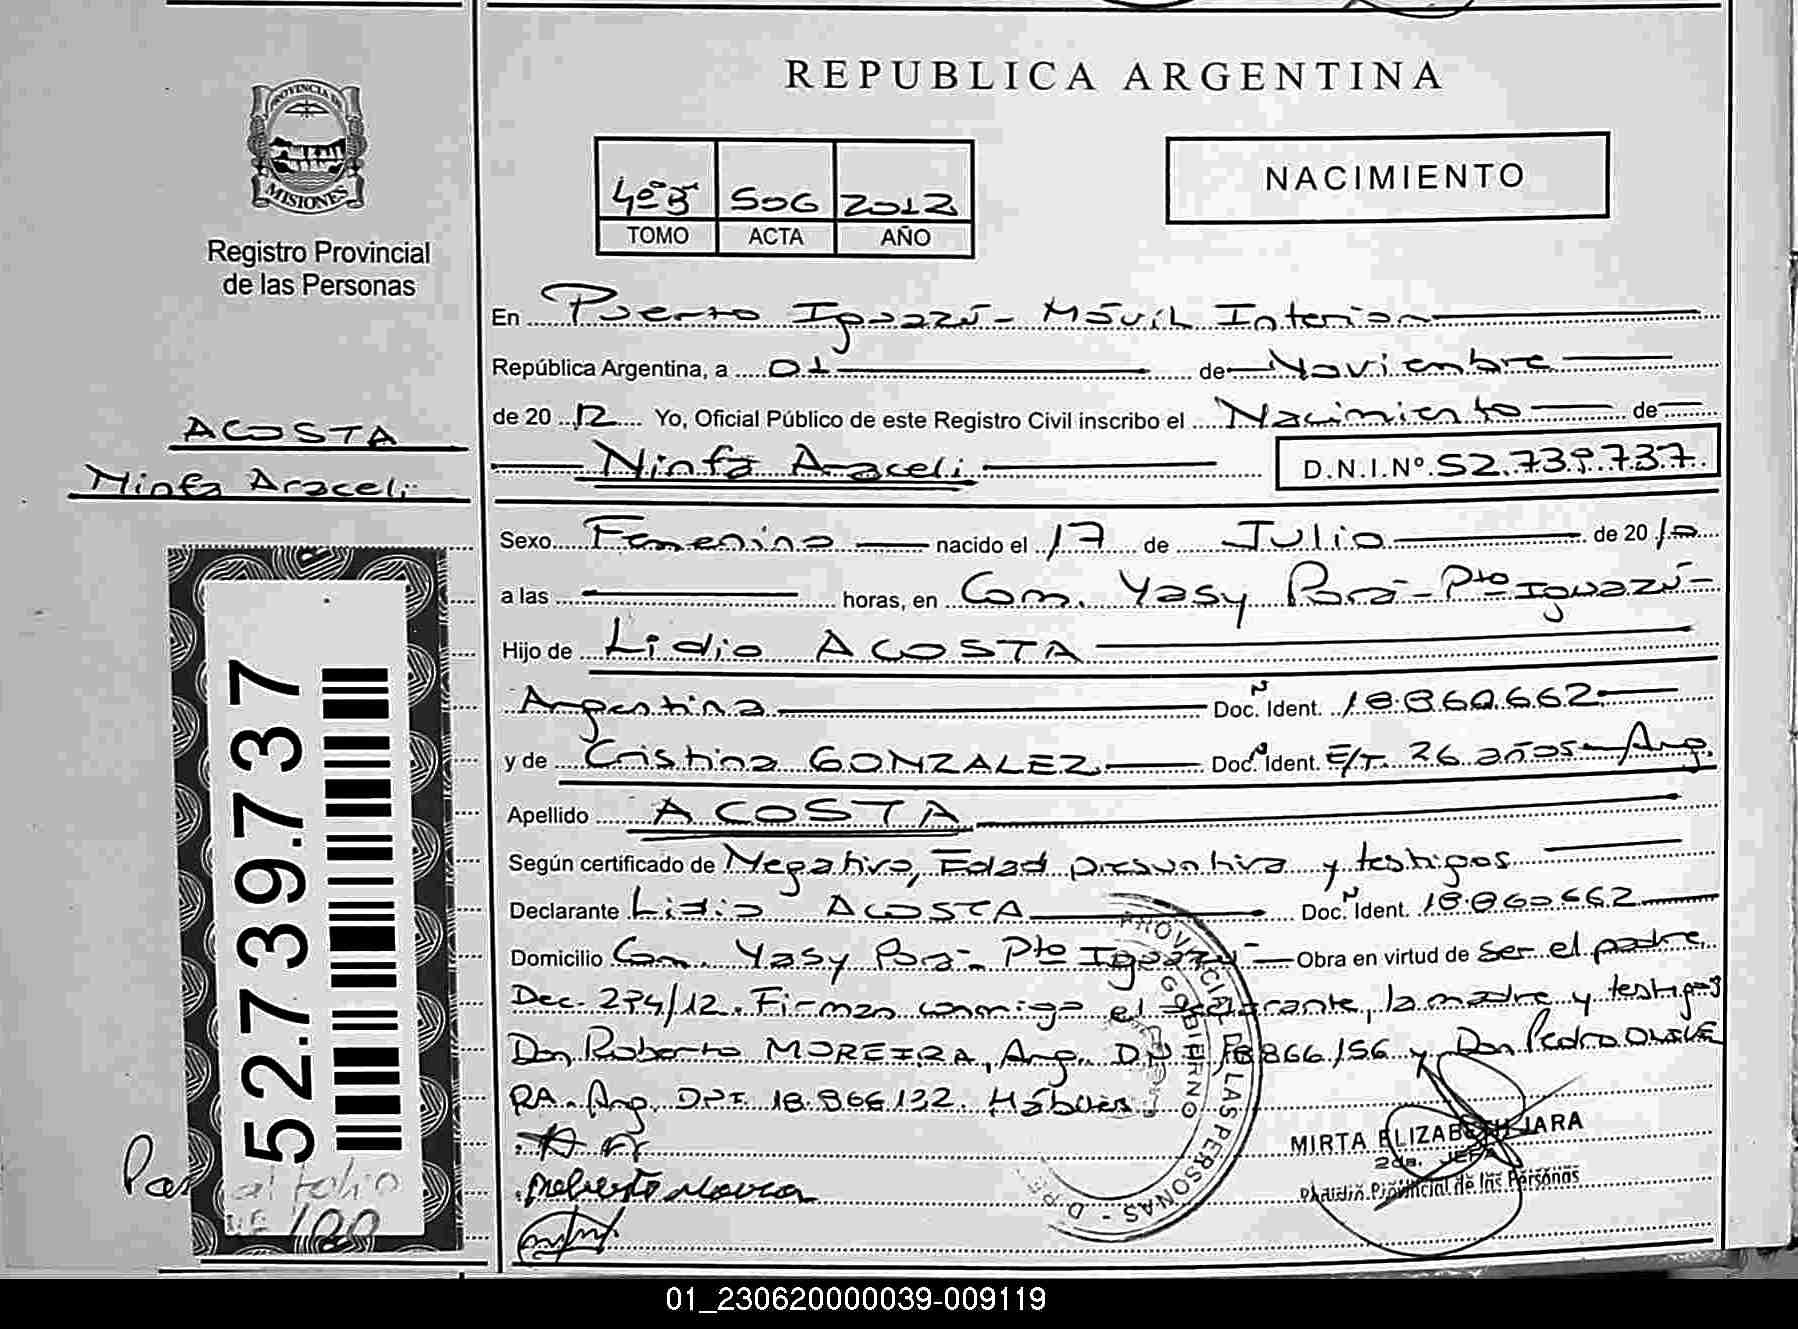 REPUBLICA ARGENTINA
PROVINCIA DE
MISIONES
Registro Provincial
de las Personas
4º B 506 2012
TOMO ACTA AÑO
NACIMIENTO
En Puerto Iguazú - Móvil Interior
República Argentina, a 01 de Noviembre
de 2012 Yo, Oficial Público de este Registro Civil inscribo el Nacimiento de
Ninfa Araceli D.N.I.Nº 52.739.737
ACOSTA
Ninfa Araceli
Sexo Femenino nacido el 17 de Julio de 2010
a las horas, en Com. Yasy Porá - Pto Iguazú -
Hijo de Lidio ACOSTA
Argentina Doc. Ident. 18.860.662
y de Cristina GONZALEZ Doc. Ident. E/T. 26 años - Arg.
Apellido ACOSTA
Según certificado de Negativo, Edad presuntiva y testigos
Declarante Lidio ACOSTA Doc. Ident. 18.860.662
Domicilio Com. Yasy Porá - Pto Iguazú - Obra en virtud de Ser el padre
Dec. 274/12. Firman conmigo el declarante, la madre y testigos
Don Roberto MOREIRA, Arg. DNI 18.866.156 y Don Pedro OLIVE
RA - Arg. DNI. 18.866.132. Hábiles.
52.739.737
Pasa al folio
Nº 100
PROVINCIAL DE LAS PERSONAS
GOBIERNO
MIRTA ELIZABETH JARA
2da. JEFA
Provincial de las Personas
01_230620000039-009119